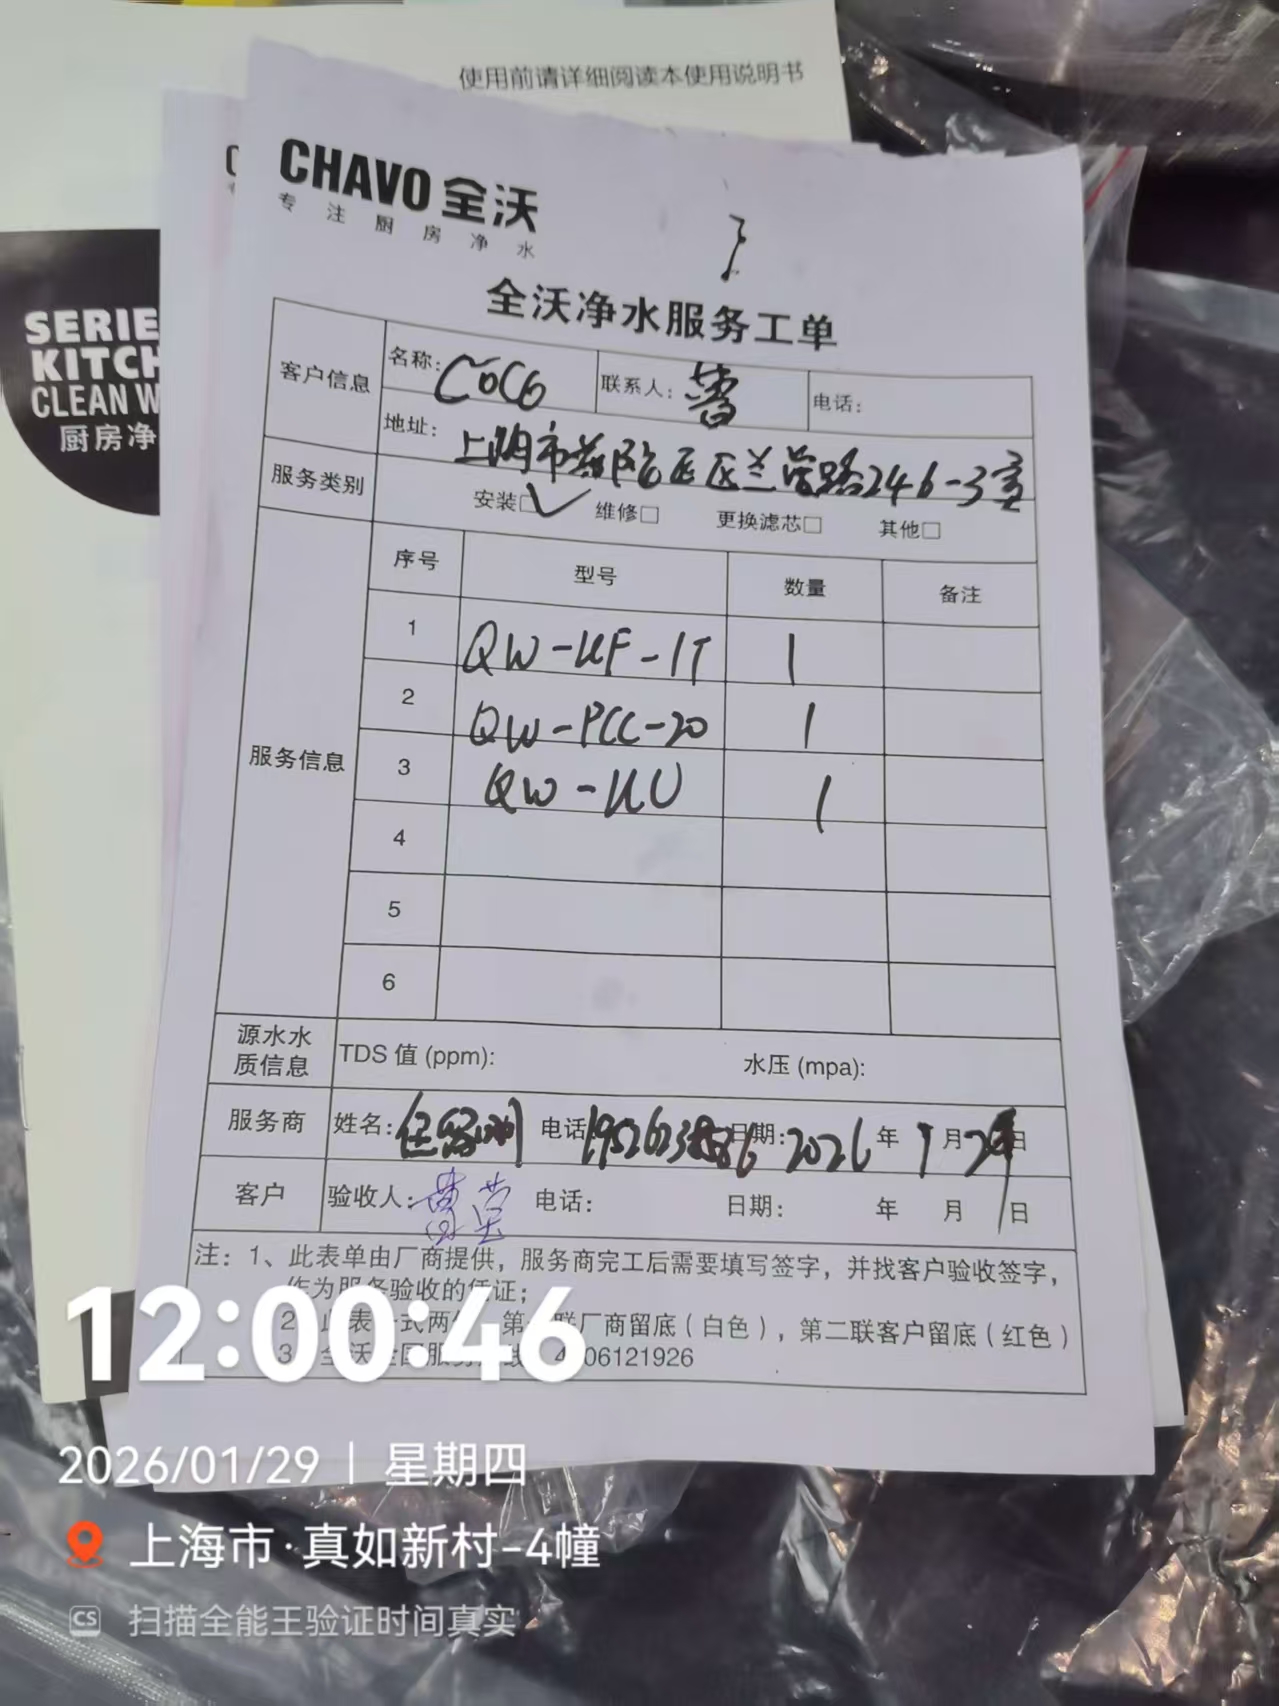 使用前请详细阅读本使用说明书
CHAVO 全沃
专注厨房净水
SERIE
KITCH
CLEAN W
厨房净
全沃净水服务工单
客户信息 名称: COCO 联系人: 曹 电话:
地址: 上海市 区兰 路246-3室
服务类别 安装☑ 维修□ 更换滤芯□ 其他□
服务信息 序号 型号 数量 备注
1 QW-UF-1T 1
2 QW-PCC-20 1
3 QW-UU 1
4
5
6
源水水质信息 TDS 值 (ppm): 水压 (mpa):
服务商 姓名: 任 电话 日期: 2026 年 1 月 29 日
客户 验收人: 电话: 日期: 年 月 日
注: 1、此表单由厂商提供，服务商完工后需要填写签字，并找客户验收签字，
作为服务验收的凭证；
2 此表一式两 第一联厂商留底（白色），第二联客户留底（红色）
3 全沃全国服务 4006121926
12:00:46
2026/01/29 | 星期四
上海市·真如新村-4幢
CS 扫描全能王验证时间真实